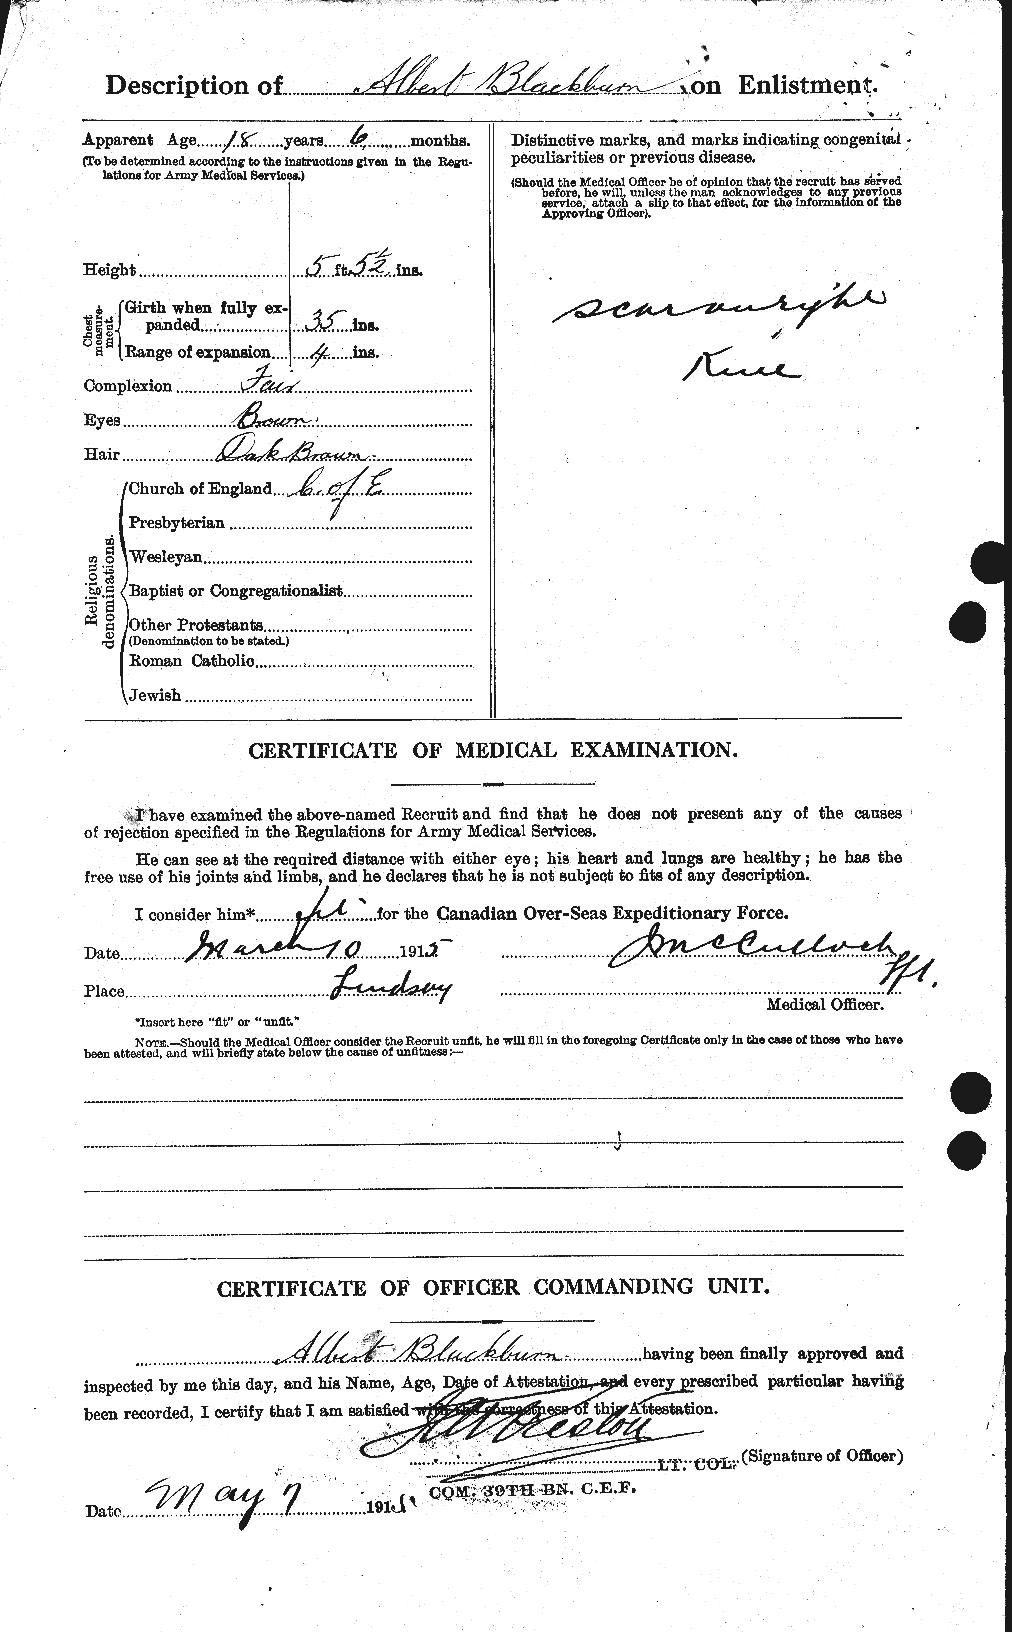 Description of Albert Blackburn on Enlistment.
Apparent Age 18 years 6 months.
(To be determined according to the instructions given in the Regu-
lations for Army Medical Services.)
Height 5 ft. 5½ ins.
Chest measure-
ment.
Girth when fully ex-
panded 35 ins.
Range of expansion 4 ins.
Complexion Fair
Eyes Brown.
Hair Dak Brown.
Religious
denominations.
Church of England C. of E
Presbyterian
Wesleyan
Baptist or Congregationalist
Other Protestants
(Denomination to be stated.)
Roman Catholic
Jewish
Distinctive marks, and marks indicating congenital
peculiarities or previous disease.
(Should the Medical Officer be of opinion that the recruit has served
before, he will, unless the man acknowledges to any previous
service, attach a slip to that effect, for the information of the
Approving Officer).
scar on right
Knee
CERTIFICATE OF MEDICAL EXAMINATION.
I have examined the above-named Recruit and find that he does not present any of the causes
of rejection specified in the Regulations for Army Medical Services.
He can see at the required distance with either eye; his heart and lungs are healthy; he has the
free use of his joints and limbs, and he declares that he is not subject to fits of any description.
I consider him* fit for the Canadian Over-Seas Expeditionary Force.
Date March 10 1915
J McCulloch
Place Lindsay
Medical Officer.
*Insert here "fit" or "unfit."
NOTE.—Should the Medical Officer consider the Recruit unfit, he will fill in the foregoing Certificate only in the case of those who have
been attested, and will briefly state below the cause of unfitness:—
CERTIFICATE OF OFFICER COMMANDING UNIT.
Albert Blackburn having been finally approved and
inspected by me this day, and his Name, Age, Date of Attestation, and every prescribed particular having
been recorded, I certify that I am satisfied with the correctness of this Attestation.
Preston
LT. COL. (Signature of Officer)
COM. 39TH BN. C.E.F.
Date May 7 1915